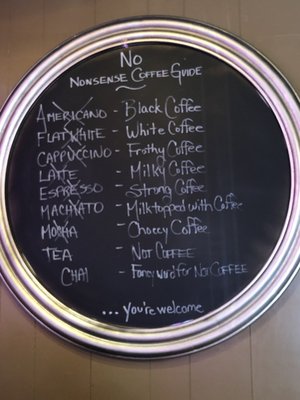 No
Nonsense Coffee Guide
Americano - Black Coffee
Flat White - White Coffee
Cappuccino - Frothy Coffee
Latte - Milky Coffee
Espresso - Strong Coffee
Machiato - Milk topped with Coffee
Mocha - Choccy Coffee
Tea - Not Coffee
Chai - Fancy word for Not Coffee
... you're welcome